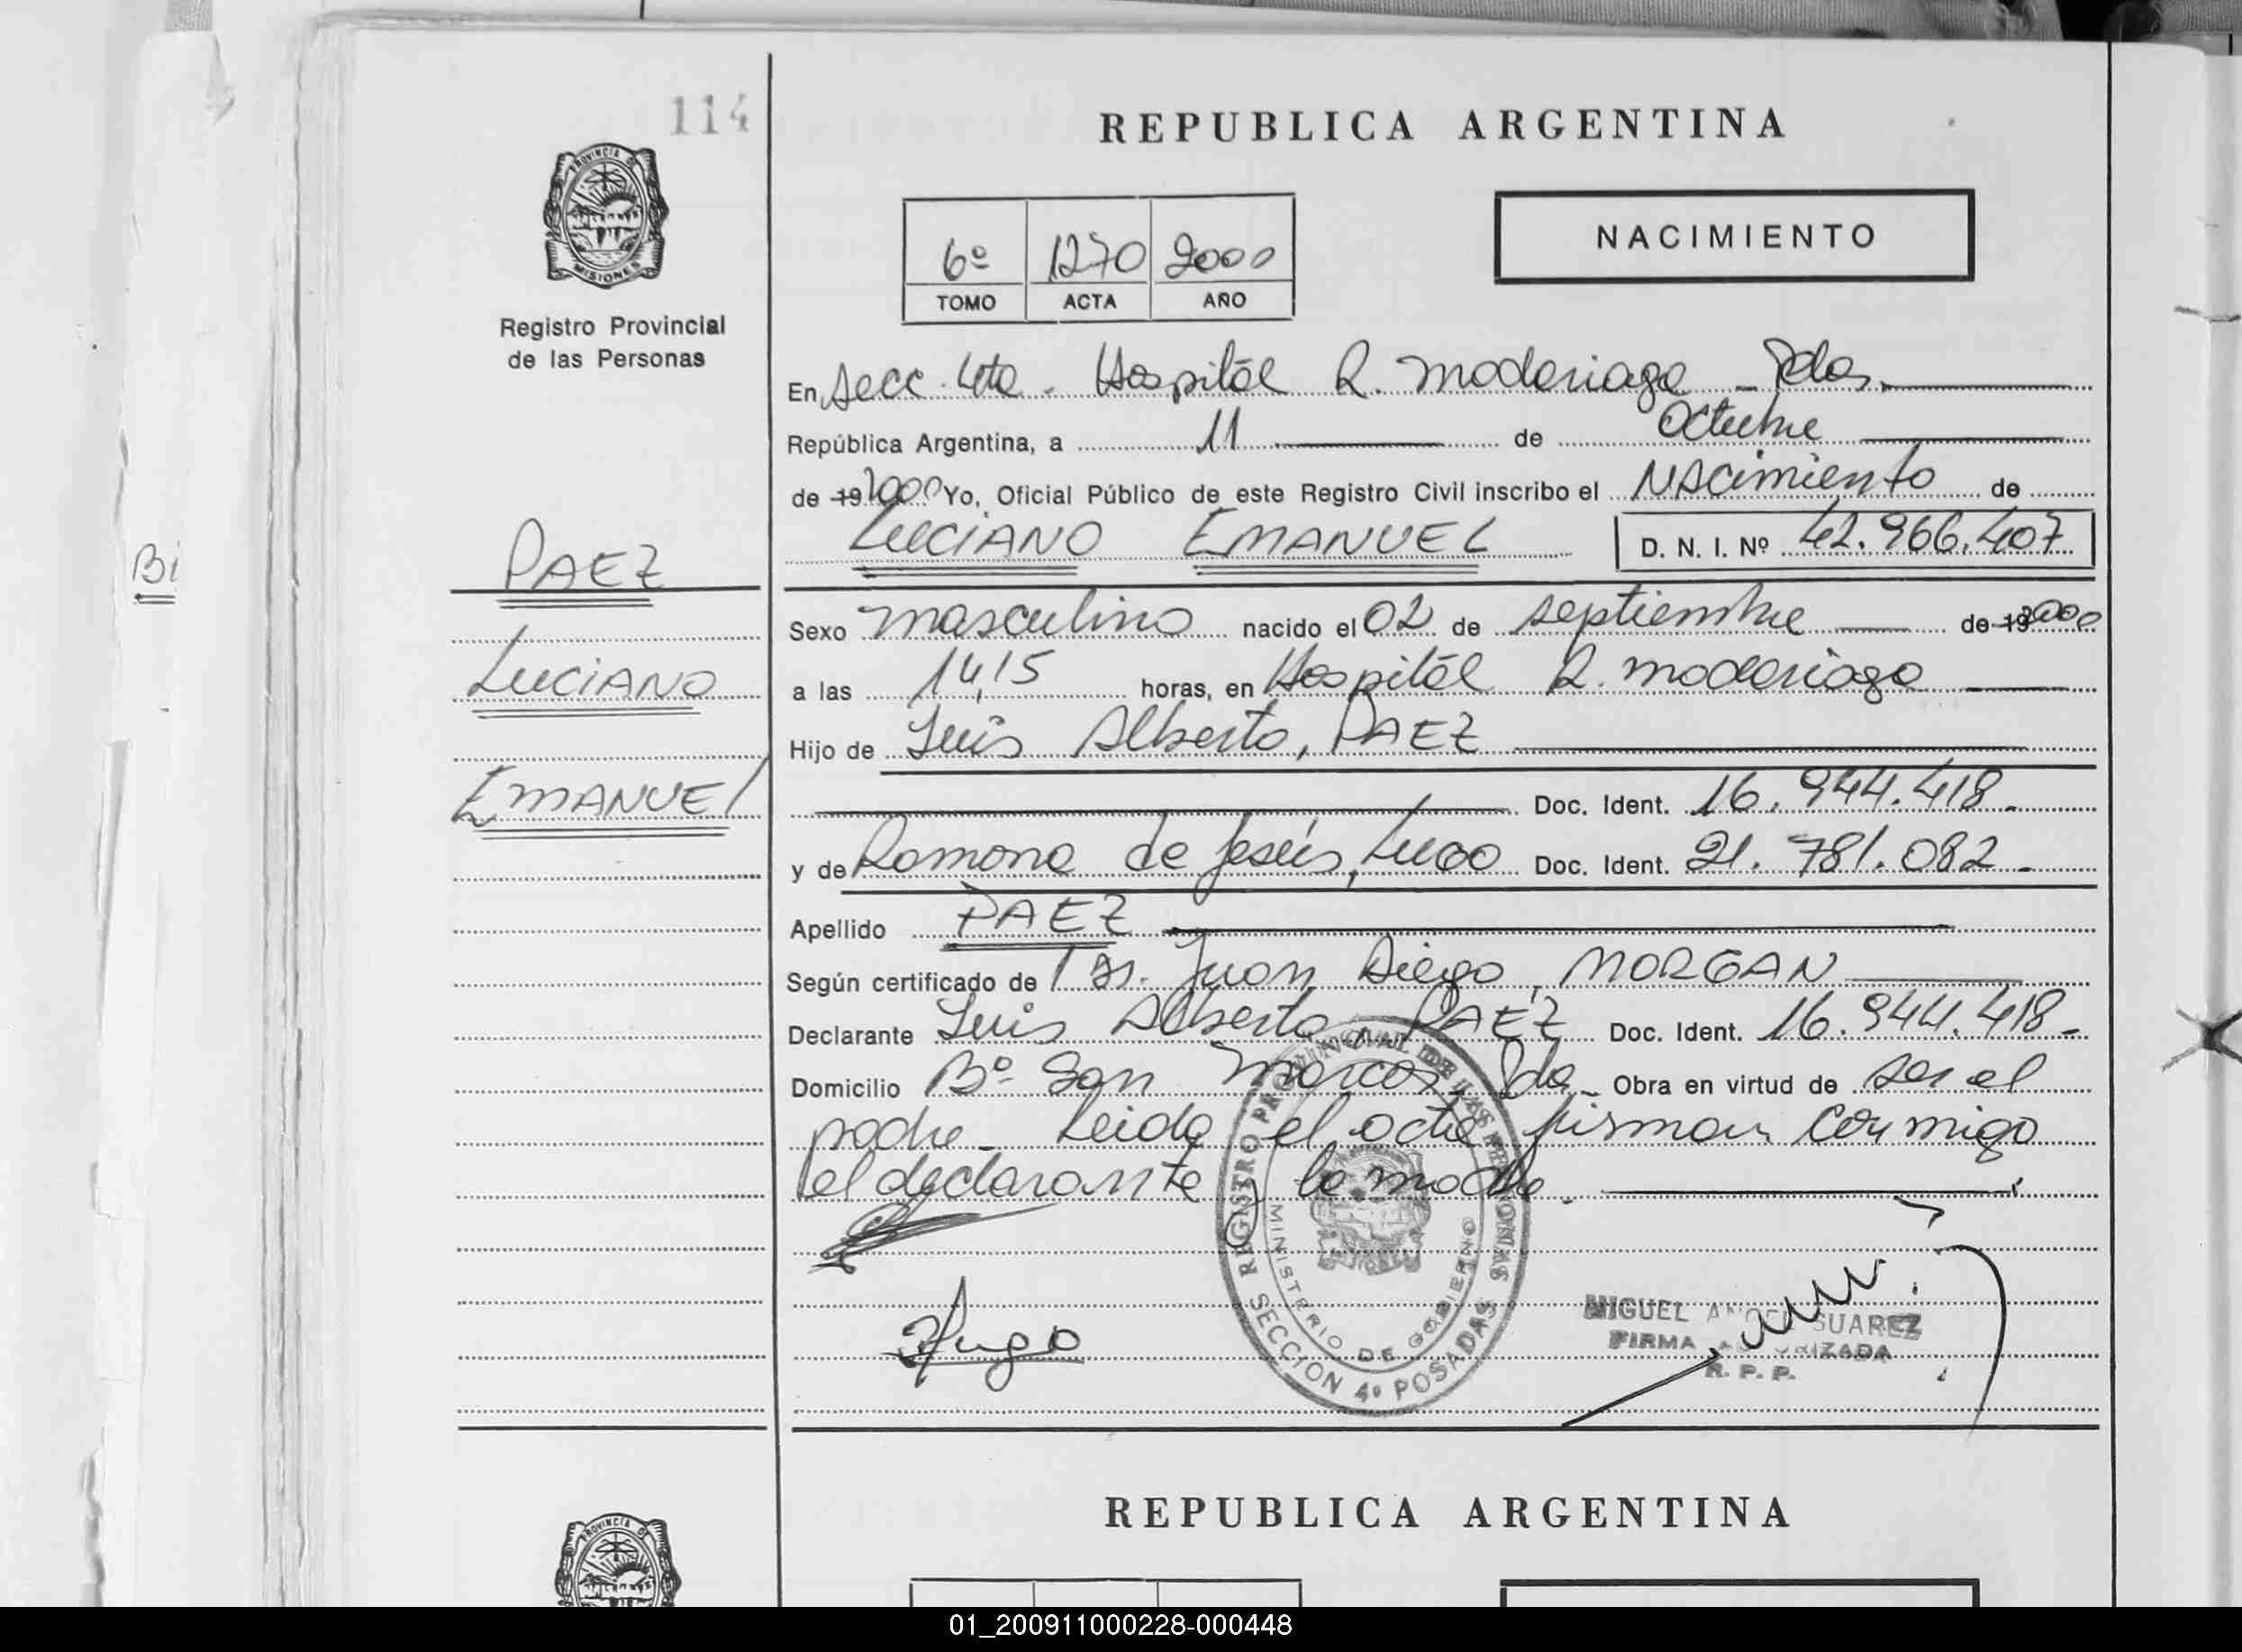 114
REPUBLICA ARGENTINA
PROVINCIA DE
MISIONES
Registro Provincial
de las Personas
6º 1270 2000
TOMO ACTA AÑO
NACIMIENTO
En Secc. 4ta. Hospital R. Madariaga - Pdas.
República Argentina, a 11 de Octubre
de 19 2000 Yo, Oficial Público de este Registro Civil inscribo el Nacimiento de
LUCIANO EMANUEL D. N. I. Nº 42.966.407
Bi
PAEZ
LUCIANO
EMANUEL
Sexo masculino nacido el 02 de septiembre de 19 2000
a las 14,15 horas, en Hospital R. Madariaga
Hijo de Luis Alberto, PAEZ
Doc. Ident. 16.944.418.
y de Ramona de Jesús, Lugo Doc. Ident. 21.781.082.
Apellido PAEZ
Según certificado de Dr. Juan Diego, MORGAN
Declarante Luis Alberto, PAEZ Doc. Ident. 16.944.418.
Domicilio Bº San Marcos, Pda. Obra en virtud de ser el
padre. Leida el acta firman conmigo
el declarante y la madre.
REGISTRO PROVINCIAL DE LAS PERSONAS
MINISTERIO DE GOBIERNO
SECCION 4º POSADAS
Lugo
MIGUEL ANGEL SUAREZ
FIRMA AUTORIZADA
R. P. P.
REPUBLICA ARGENTINA
PROVINCIA DE
01_200911000228-000448